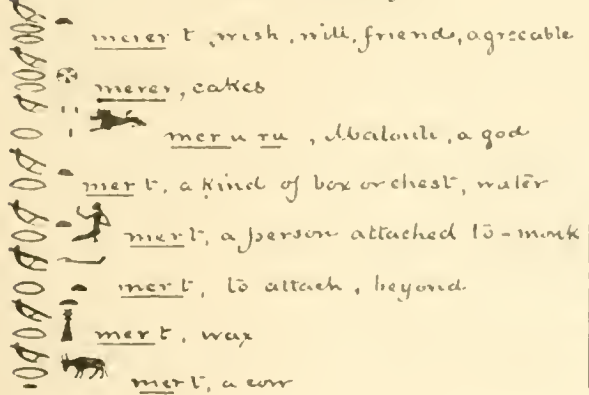 merer t, wish, will, friend, agreeable
merer, cakes
mer u ru, a god
mer t, a kind of box or chest, water
mer t, a person attached to - monk
mer t, to attach, beyond
mer t, wax
mer t, a cow